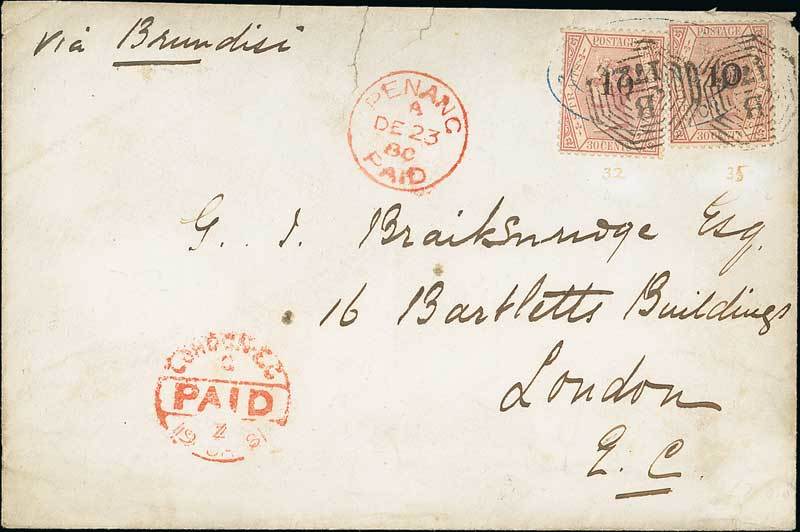 via Brundisi
POSTAGE
POSTAGE
10
10
B
B
30 CENTS
30 CENTS
32
35
PENANG
A
DE 23
80
PAID
G. J. Braikenridge Esq.
16 Bartletts Buildings
London
E. C.
LONDON. E.C
PAID